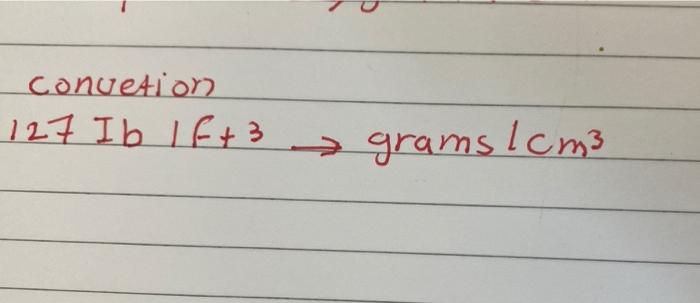 convetion
127 Ib / Ft3 → grams / cm³